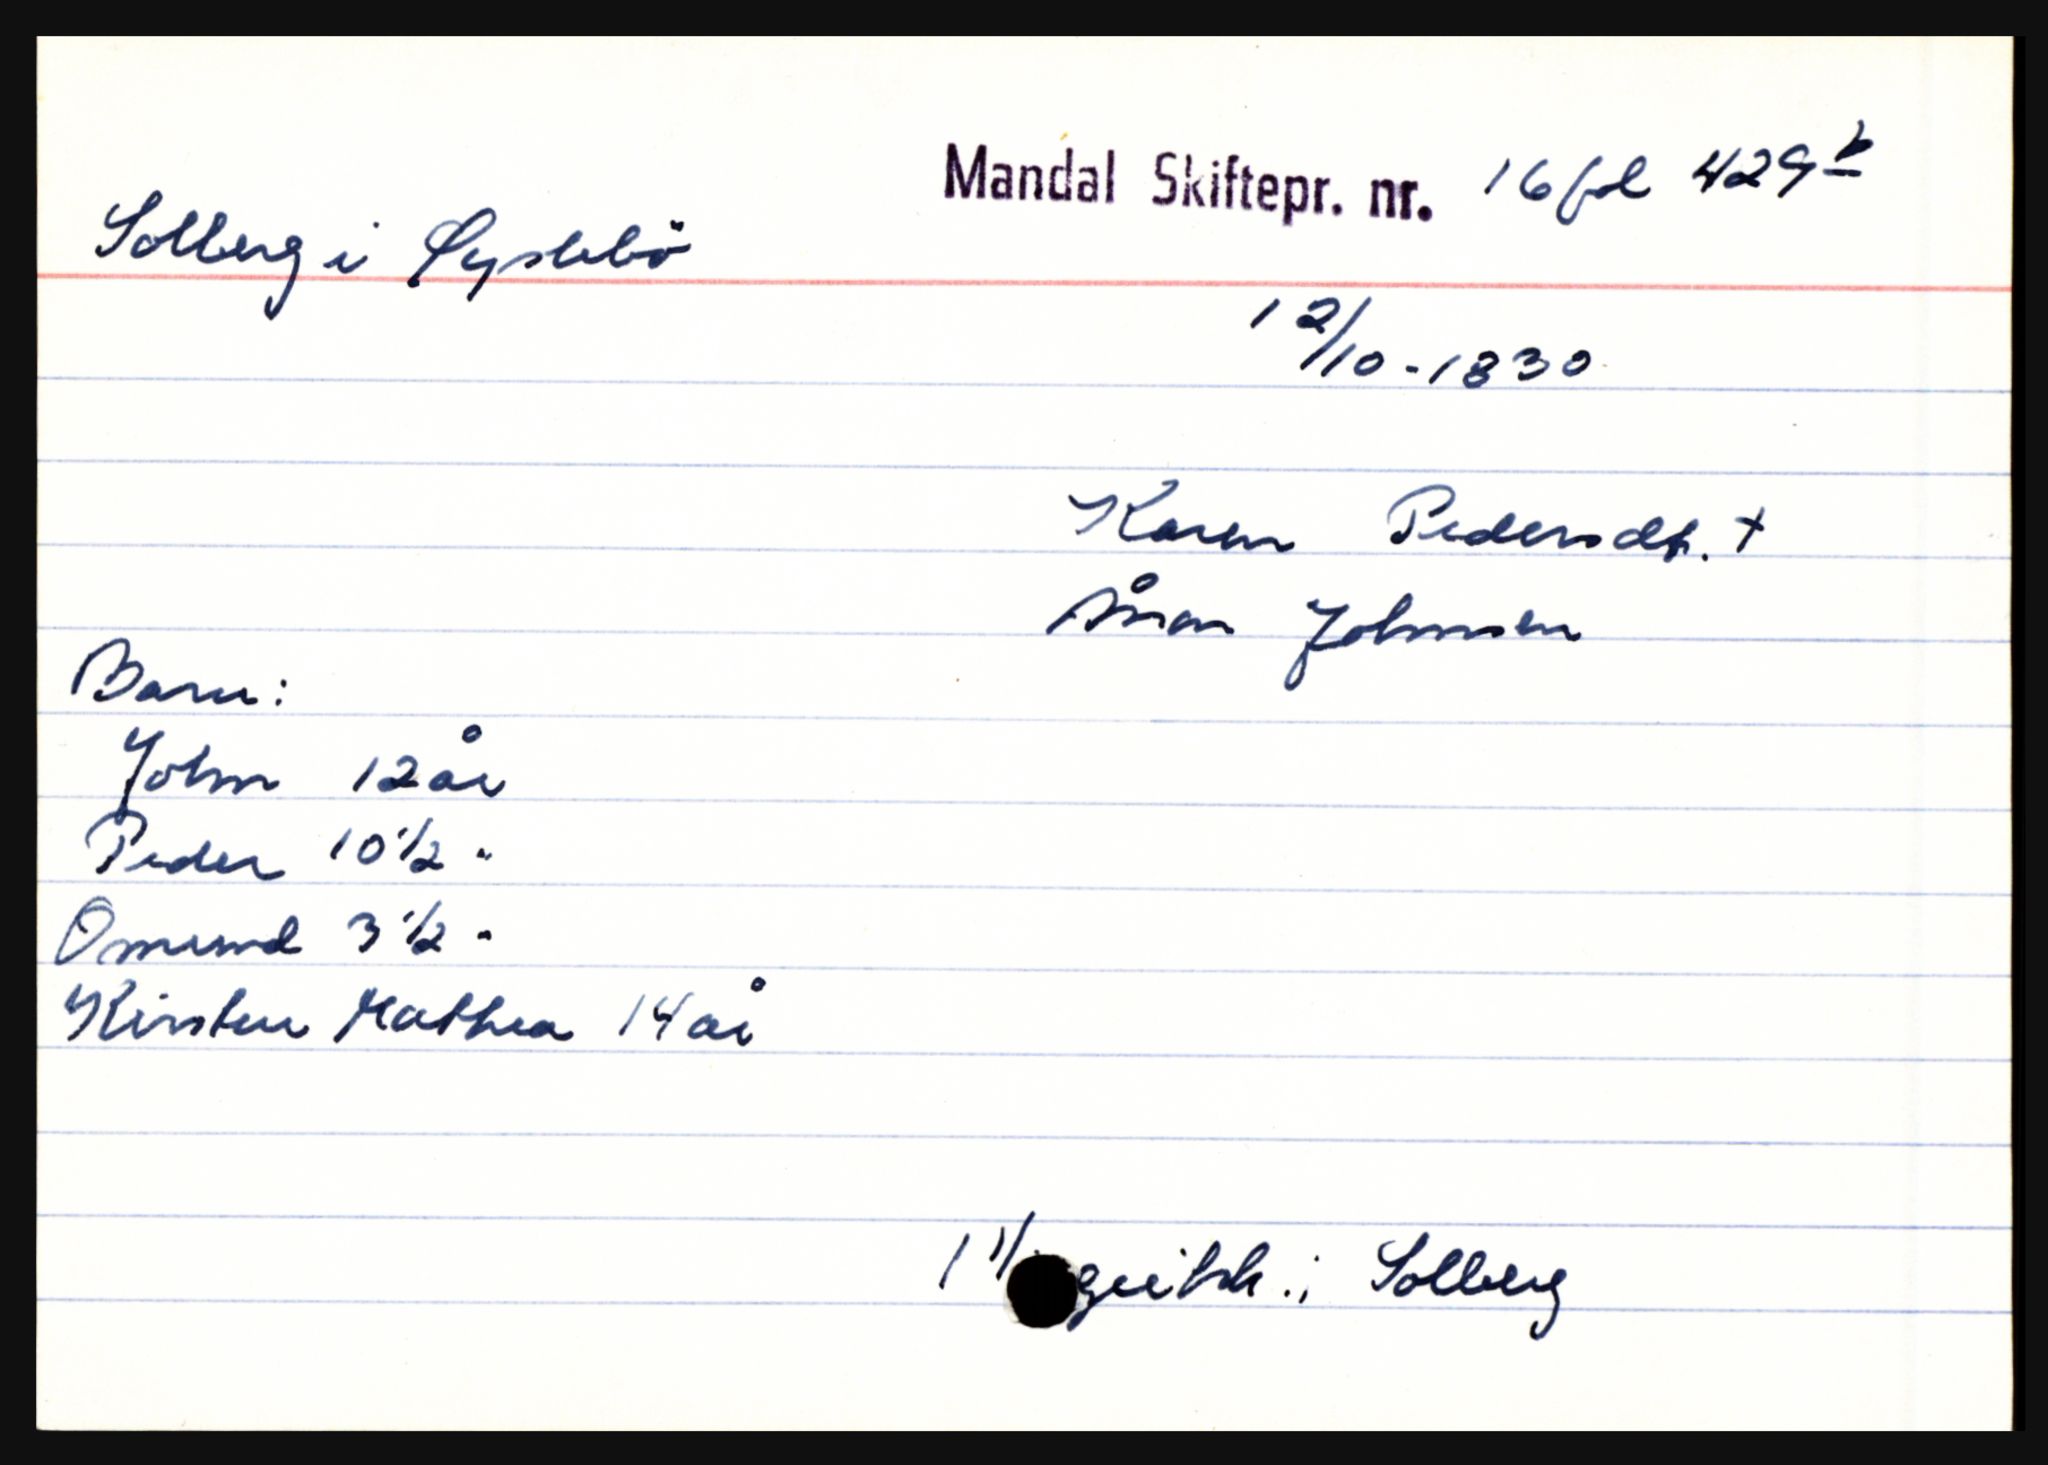 Mandal Skiftepr. nr. 16 fol 429 b
Solberg i Øyslebö
12/10-1830
Karen Pedersdt. +
Ånon Johnsen
Barn:
John 12 år
Peder 10 1/2 "
Omund 3 1/2 "
Kirsten Mathea 14 år
1 1/ i Solberg